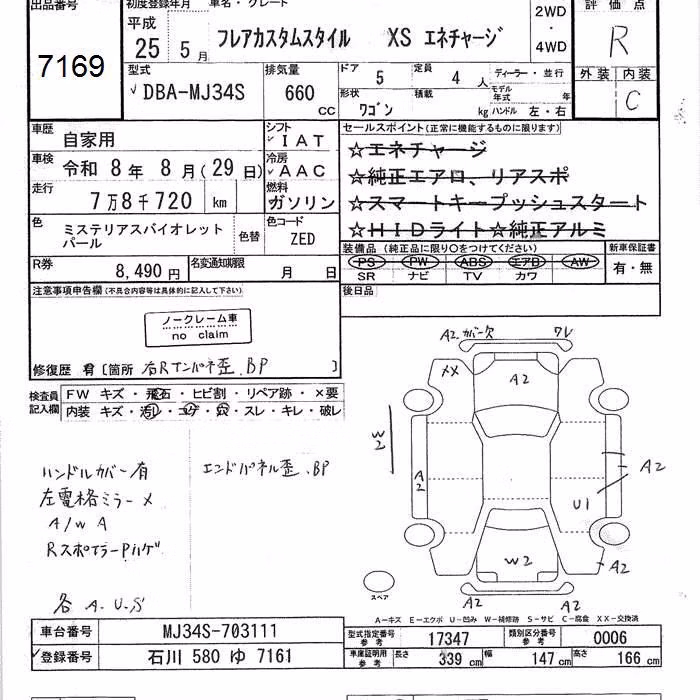 出品番号 初度登録年月 車名・グレード 評価点
7169
平成
25 5月
フレアカスタムスタイル XS エネチャージ
2WD
・
4WD
R
外装 内装
C
型式 排気量 ドア 定員 ディーラー・並行
DBA-MJ34S 660 cc
5 4人
モデル年式 年
形状 積載
ワゴン kg ハンドル 左・右
車歴 自家用 シフト IAT
車検 令和 8年 8月(29日) 冷房 AAC
走行 7万8千720 km 燃料 ガソリン
色 ミステリアスバイオレットパール 色替 色コード ZED
R券 8,490円 名変通知期限 月 日
セールスポイント(正常に機能するものに限ります)
☆エネチャージ
☆純正エアロ、リアスポ
☆スマートキープッシュスタート
☆HIDライト☆純正アルミ
装備品(純正品に限り○をつけてください) 新車保証書
PS PW ABS エアB AW
SR ナビ TV カワ
有・無
後日品
注意事項申告欄(不具合内容等は具体的に記入して下さい)
ノークレーム車
no claim
修復歴 有 [箇所 右Rインパネ歪.BP ]
検査員記入欄
FW キズ・飛石・ヒビ割・リペア跡・×要
内装 キズ・汚レ・コゲ・穴・スレ・キレ・破レ
ハンドルカバー有
左電格ミラーメ
A/W A
RスポイラーPハゲ
各 A.U.S
エンドパネル歪.BP
A2 カバー欠 ワレ
XX
A2
W2
A2
A2
U1
W2
A2
A2 A2
スペア
A-キズ E-エクボ U-凹み W-補修跡 S-サビ C-腐食 XX-交換済
車台番号 MJ34S-703111
登録番号 石川 580 ゆ 7161
型式指定番号 参考 17347 類別区分番号 参考 0006
車庫証明用 参考 長さ 339cm 幅 147cm 高さ 166cm